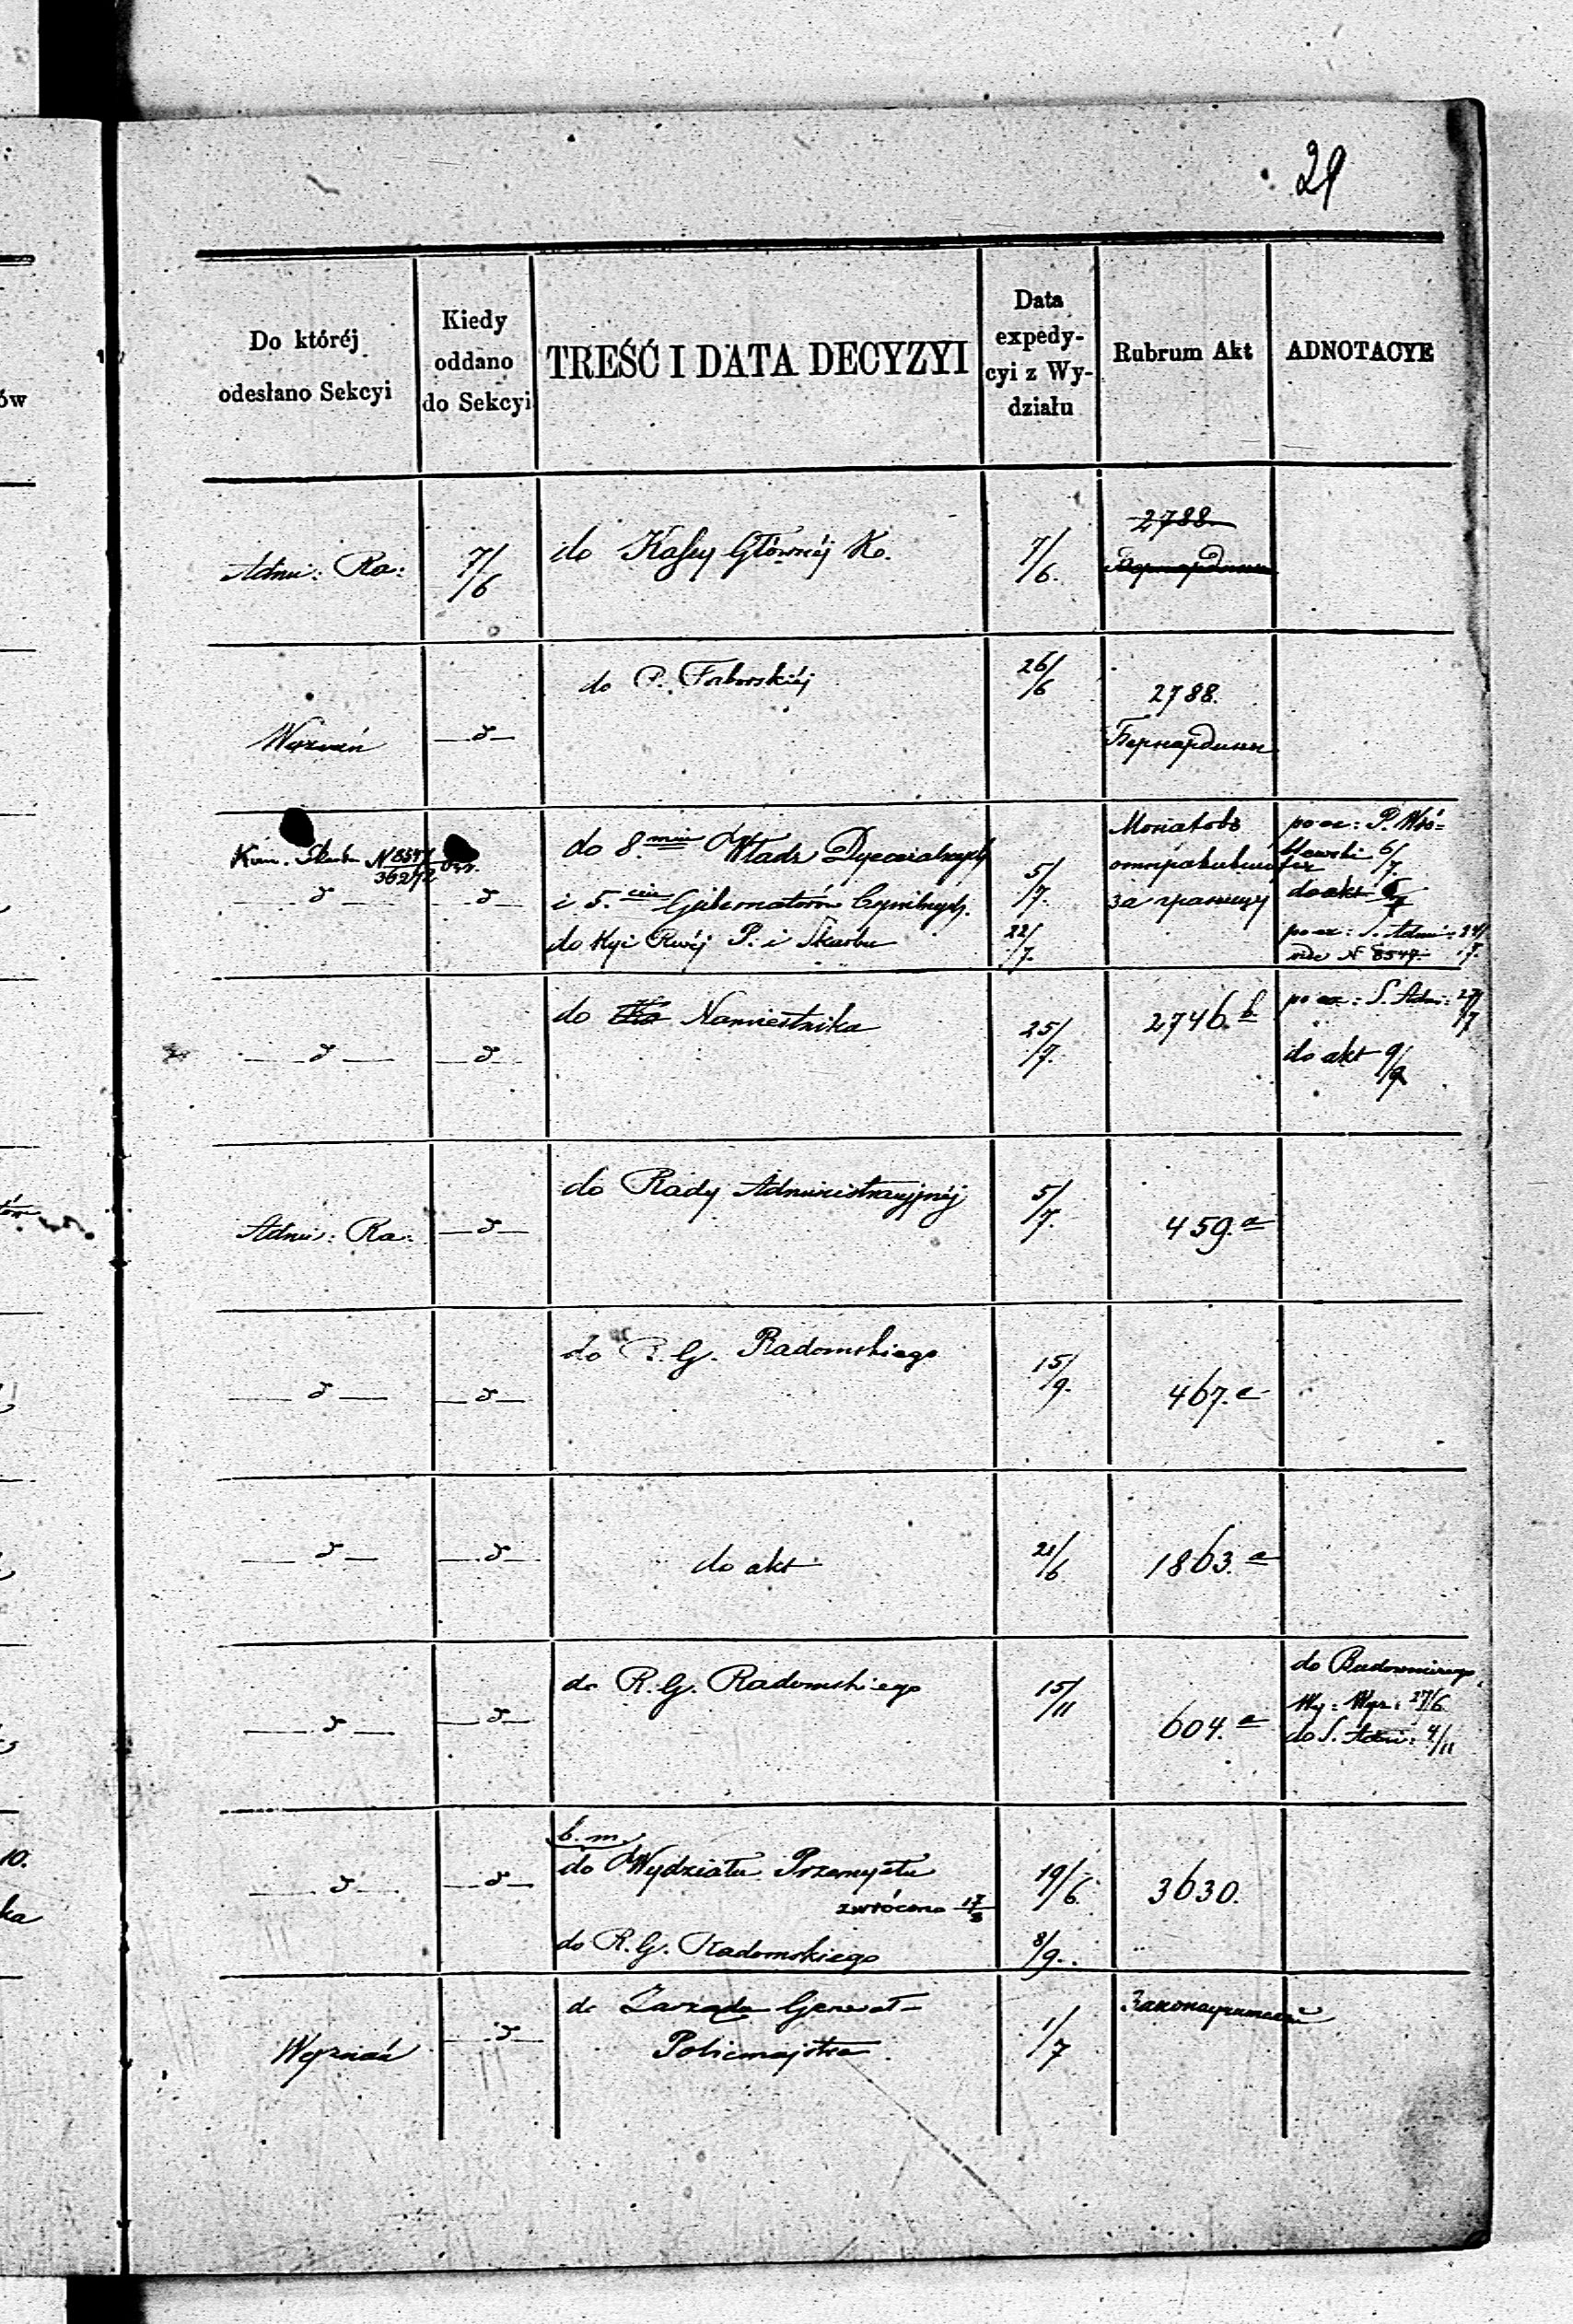 29
Do któréj
odesłano Sekcyi
Kiedy
oddano
do Sekcyi
TREŚĆ I DATA DECYZYI
Data
expedy-
cyi z Wy-
działu
Rubrum Akt
ADNOTACYE
Admi: Ra:
7/6
do Kassy Głównéj Ko.
7/6.
2788
Бернардины
Wyznań
—d—
do P. Taborskiéj
26/6
2788.
Бернардины
Kom. Skarbu N 8547
36292
—d—
—d—
do 8.miu Władz Dyecezalnych
i 5.ciu Gubernatorów Cywilnych.
do Kyi Rwéj P. i Skarbu
5/7.
22/7.
Монаховъ
отправивших
за границу
po ex: P. Wró=
blewski 6/7.
do akt
po ex: S. Admi: 24/7.
vide N 8547
—d—
—d—
do Namiestnika
25/7.
2746.b
po ex: S. Admi: 27/7
do akt 9/9
Admi: Ra:
—d—
do Rady Administracyjnéj
5/7.
459.a
—d—
—d—
do R. G. Radomskiego
15/9.
467.a
—d—
—d—
do akt
21/6
1863.a
—d—
—d—
do R. G. Radomskiego
15/11
604.a
do Radomskiego
Wy: Wyz: 27/6
do S. Admi: 4/11
—d—
—d—
b. m.
do Wydziału Przemysłu
zwrócono 17/8
do R. G. Radomskiego
19/6.
8/9.
3630.
Wyznań
—d—
do Zarządu Generał-
Policmajstra
1/7